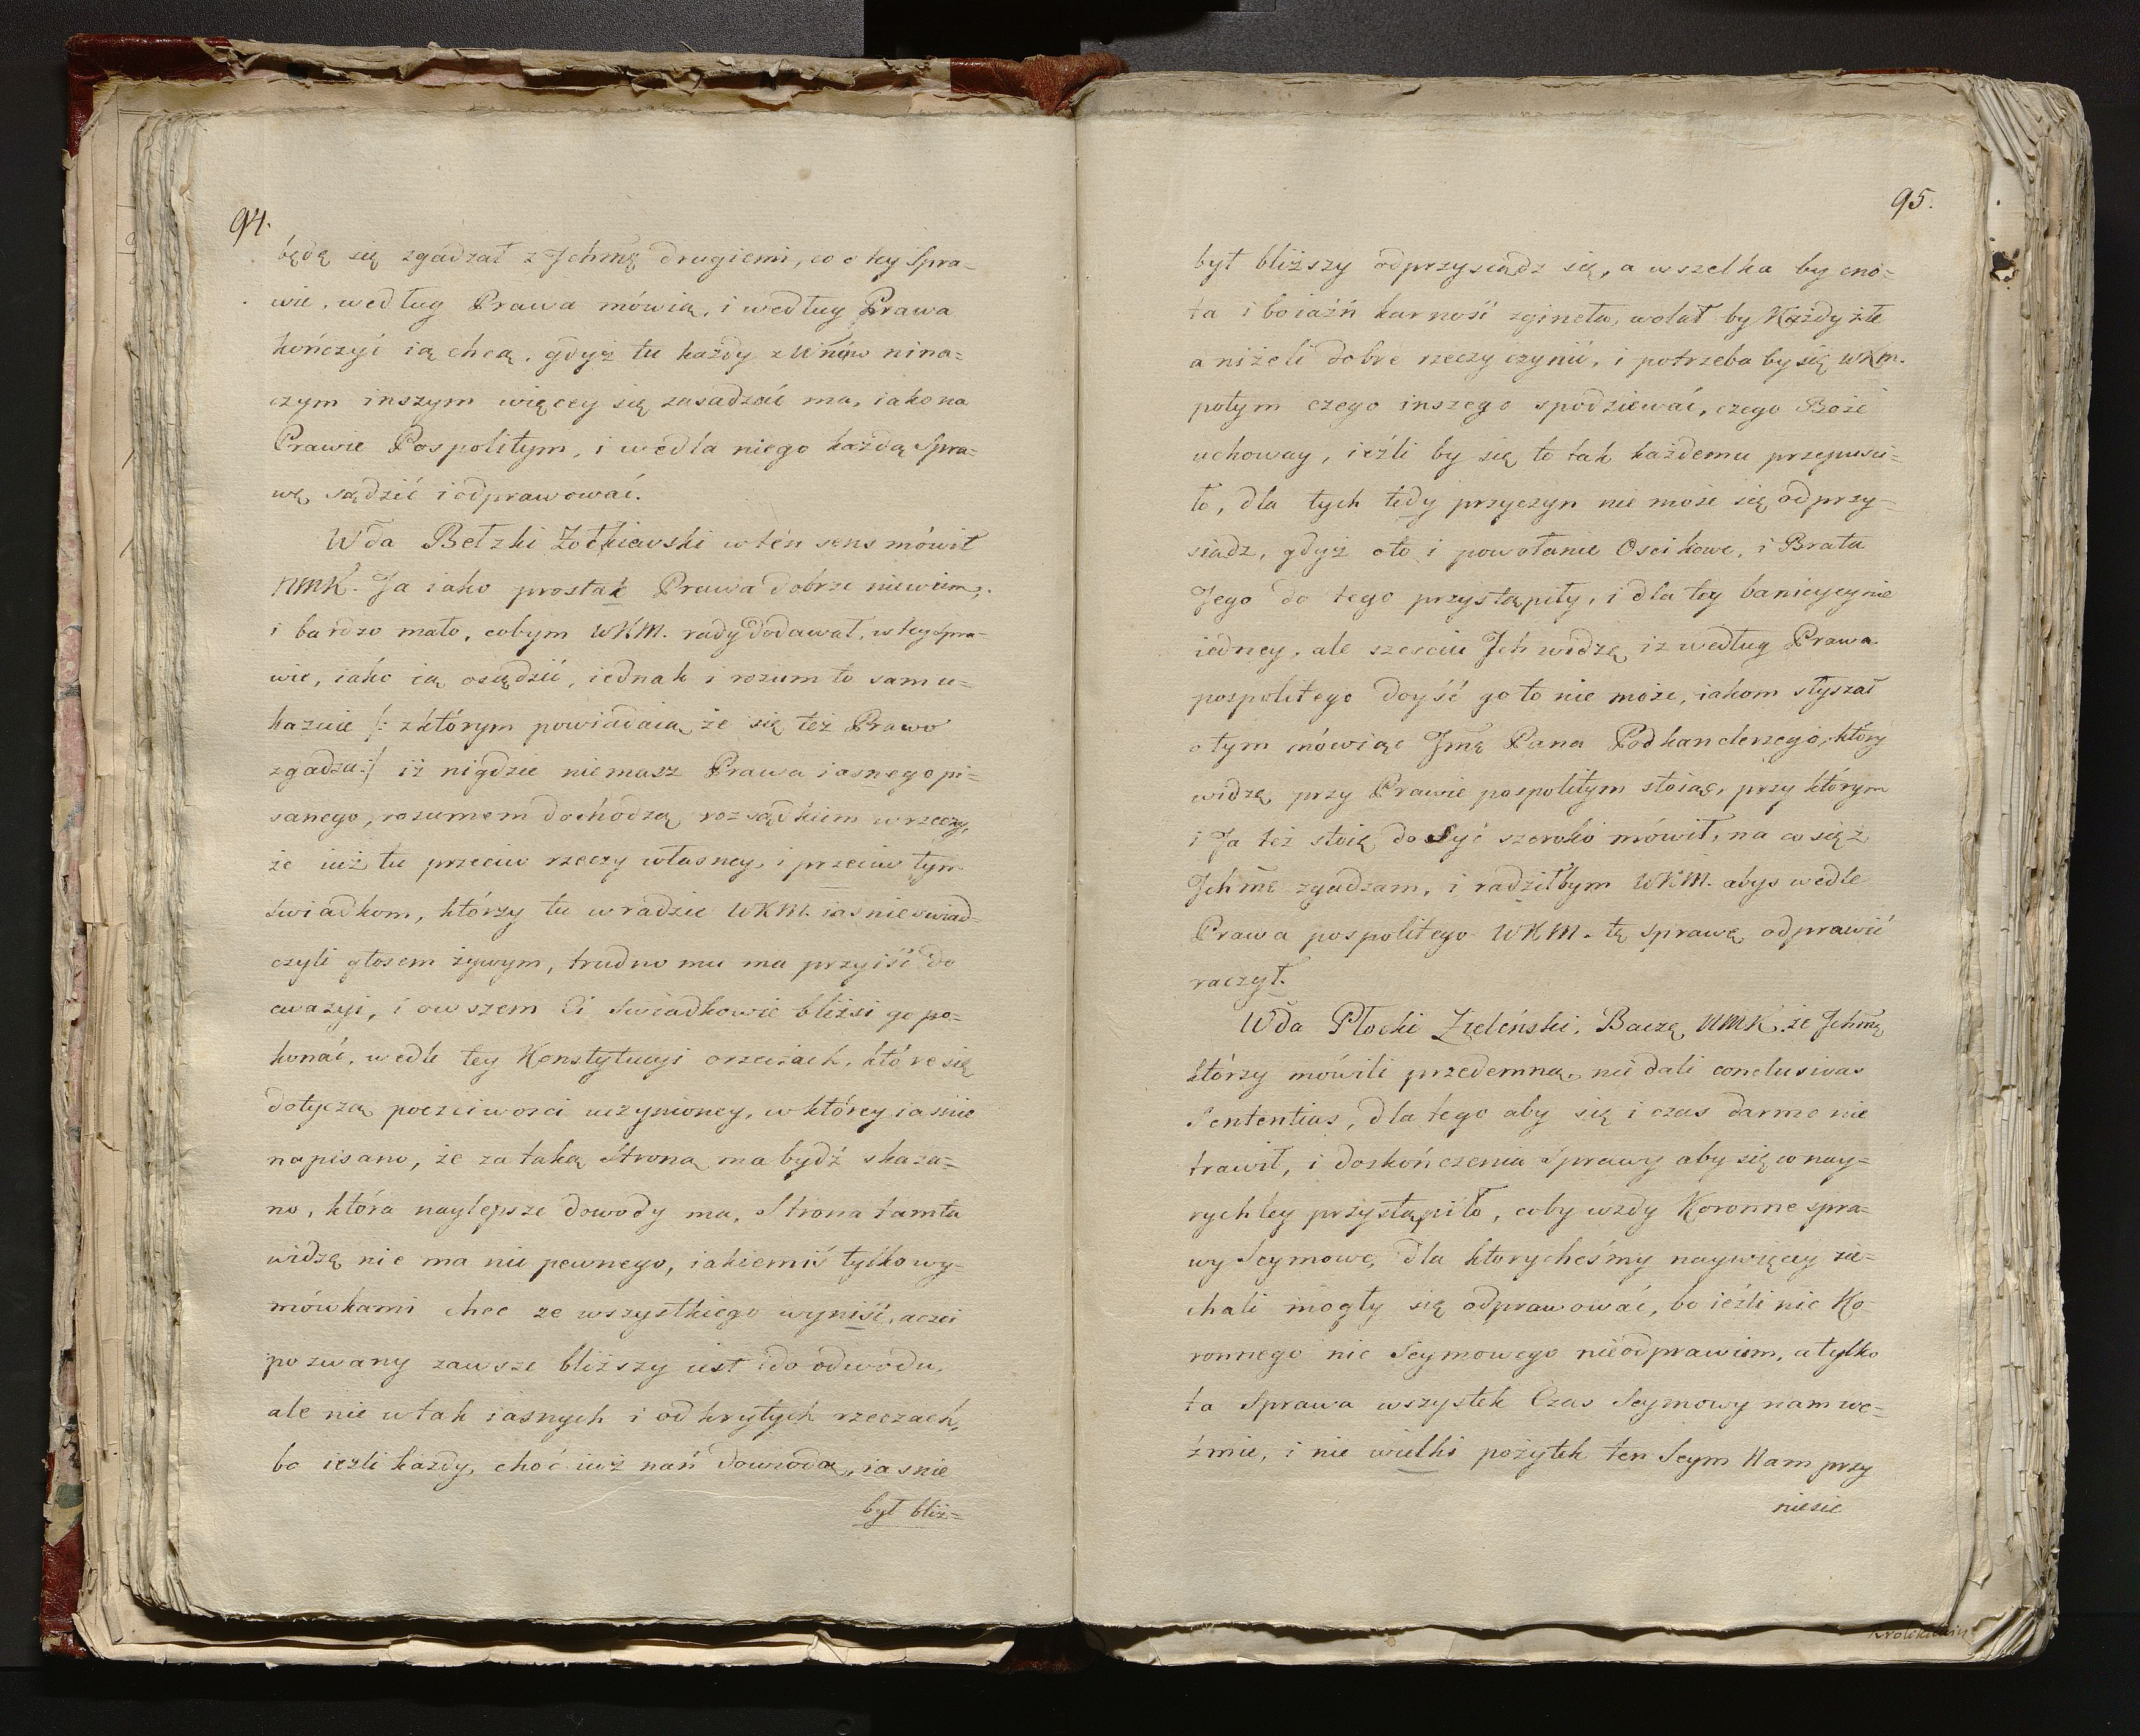 94.
będę się zgadzał z Jchmę drugiemi, co o tey Spra-
wie, według Prawa mówią, i według Prawa
kończyć ią chcą, gdyż tu każdy z Wnów nina-
czym inszym więcey się zasadzać ma, iako na
Prawie Pospolitym, i wedla niego każdą Spra-
wę sądzić i odprawować.
Wda Bełzki Żołkiewski w tén sens mówił
NMK. Ja iako prostak Prawa dobrze niewiem,
i bardzo mało, cobym WKM. rady dodawał, w tey Spra-
wie, iako ią osądzić, iednak i rozum to sam u-
kazuie /: z którym powiadaią że się też Prawo
zgadza :/ iż nigdzie niemasz Prawa iasnego pi-
sanego, rozumem dochodzą rozsądkiem w rzeczy,
że iuż tu przeciw rzeczy własney, i przeciw tym
świadkom, którzy tu w radzie WKM. iasnie swiad-
czyli głosem żywym, trudno mu ma przyiść do
ewazyi, i owszem Ci Swiadkowie bliżsi go po-
konać, wedle tey Konstytucyi o rzeczach, które się
dotyczą poczciwosci uczynioney, w którey iasnie
napisano, że za taką Stroną ma bydź skaza-
no, która naylepsze dowody ma, Strona tamta
widzę nie ma nic pewnego, iakiemiś tylko wy-
mówkami chce ze wszystkiego wyniść, aczci
pozwany zawsze bliższy iest do odwodu,
ale nie w tak iasnych i odkrytych rzeczach,
bo ieżli każdy, choć iuż nań dowiodą, iasnie
był bliż-
95.
był bliższy odprzysiądz się, a wszelka by cno-
ta i boiaźń karność zginęła, wolał by Każdy złe
a niżeli dobre rzeczy czynić, i potrzeba by się WKM.
potym czego inszego spodziewać, czego Boże
uchoway, ieźli by się to tak każdemu przepusci-
ło, dla tych tedy przyczyn nie może się odprzy-
siądz, gdyż oto i powołanie Oscikowe, i Brata
Jego do tego przystąpiły, i dla tey banicyey nie
iedney, ale szesciu Jch widzę, iż według Prawa
pospolitego doyść go to nie może, iakom słyszał
o tym mówiąc Jmę Pana Podkanclerzego, który
widzę, przy Prawie pospolitym stoiąc, przy którym
i Ja też stoię dosyć szeroko mowił, na co się z
Jchme zgadzam, i radziłbym WKM. abys wedle
Prawa pospolitego WKM. tę Sprawę odprawić
raczył.
Wda Płocki Zieleński. Baczę NMK. że Jchmę
którzy mówili przedemną, nie dali conclusivas
Sententias, dla tego aby się i czas darmo nie
trawił, i doskończenia Sprawy aby się co nay-
rychley przystąpiło, coby wzdy Koronne spra-
wy Seymowe, dla ktorycheśmy naywięcey zie-
chali mogły się odprawować, bo ieźli nic Ko-
ronnego nic Seymowego nieodprawiem, a tylko
ta Sprawa wszystek Czas Seymowy nam we-
źmie, i nie wielki pożytek ten Seym Nam przy
niesie